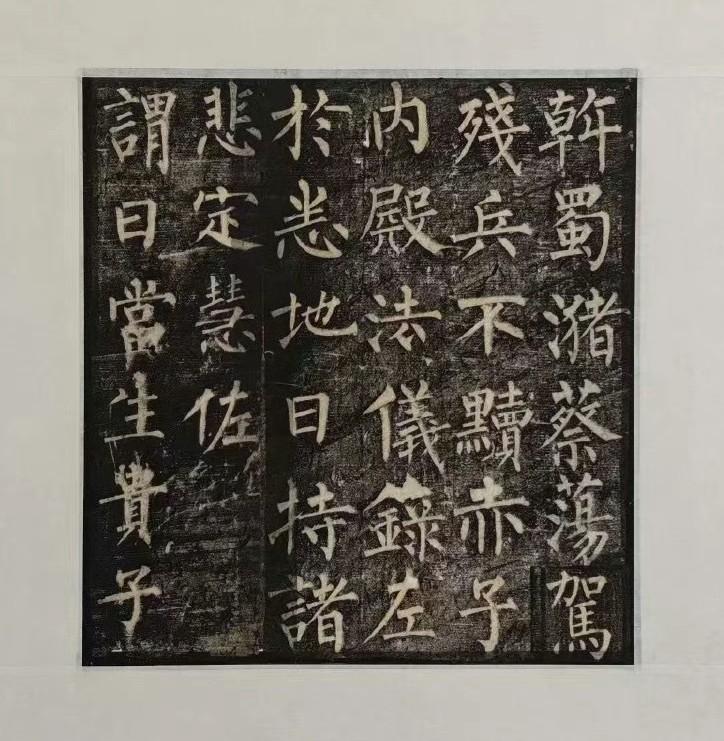 斡蜀潴蔡蕩駕
殘兵不黷赤子
内殿法儀錄左
於悉地日持諸
悲定慧佐
謂曰當生貴子